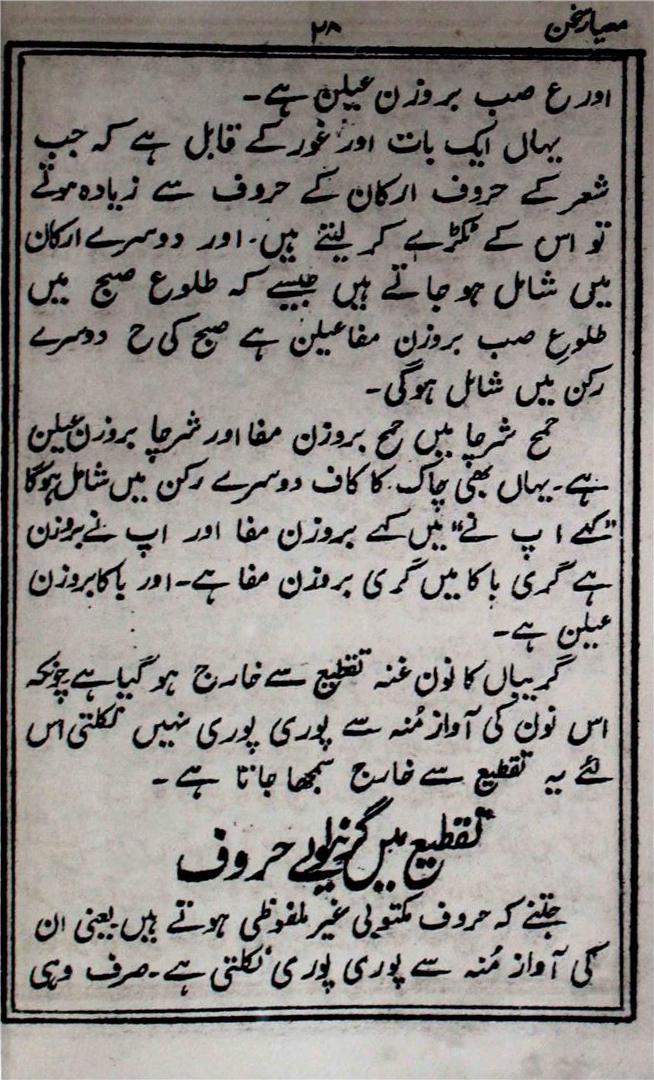 معیار سخن
۲۸
اور ع صب بروزن عیلن ہے۔
یہاں ایک بات اور غور کے قابل ہے کہ جب
شعر کے حروف ارکان کے حروف سے زیادہ ہوتے
تو اس کے ٹکڑے کر لیتے ہیں۔ اور دوسرے ارکان
میں شامل ہو جاتے ہیں جیسے کہ طلوع صبح میں
طلوع صب بروزن مفاعیلن ہے صبح کی ح دوسرے
رکن میں شامل ہوگی۔
شرچا میں بروزن مفا اور شرچا بروزن عیلن
ہے۔ یہاں بھی چاک کا کاف دوسرے رکن میں شامل ہوگا
"کہے ا پ نے" میں کہے بروزن مفا اور اپ نے بروزن
ہے گری با کا میں گری بروزن مفا ہے۔ اور با کا بروزن
عیلن ہے۔
گریباں کا نون غنہ تقطیع سے خارج ہو گیا ہے چونکہ
اس نون کی آواز مُنہ سے پوری پوری نہیں نکلتی اس
لئے یہ تقطیع سے خارج سمجھا جاتا ہے۔
تقطیع میں گرنیوالے حروف
جتنے کہ حروف مکتوبی غیر ملفوظی ہوتے ہیں یعنی ان
کی آواز مُنہ سے پوری پوری نکلتی ہے۔ صرف وہی